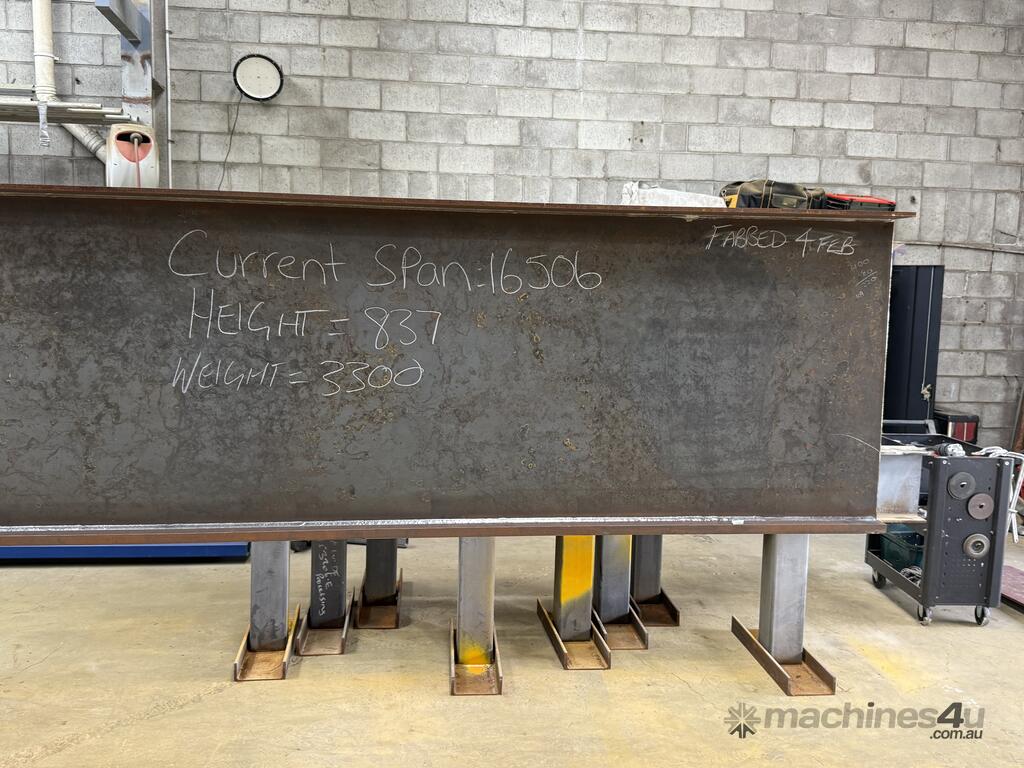 Current Span:16506
HEIGHT = 837
WEIGHT = 3300
FABBED 4 FEB
machines4u
.com.au